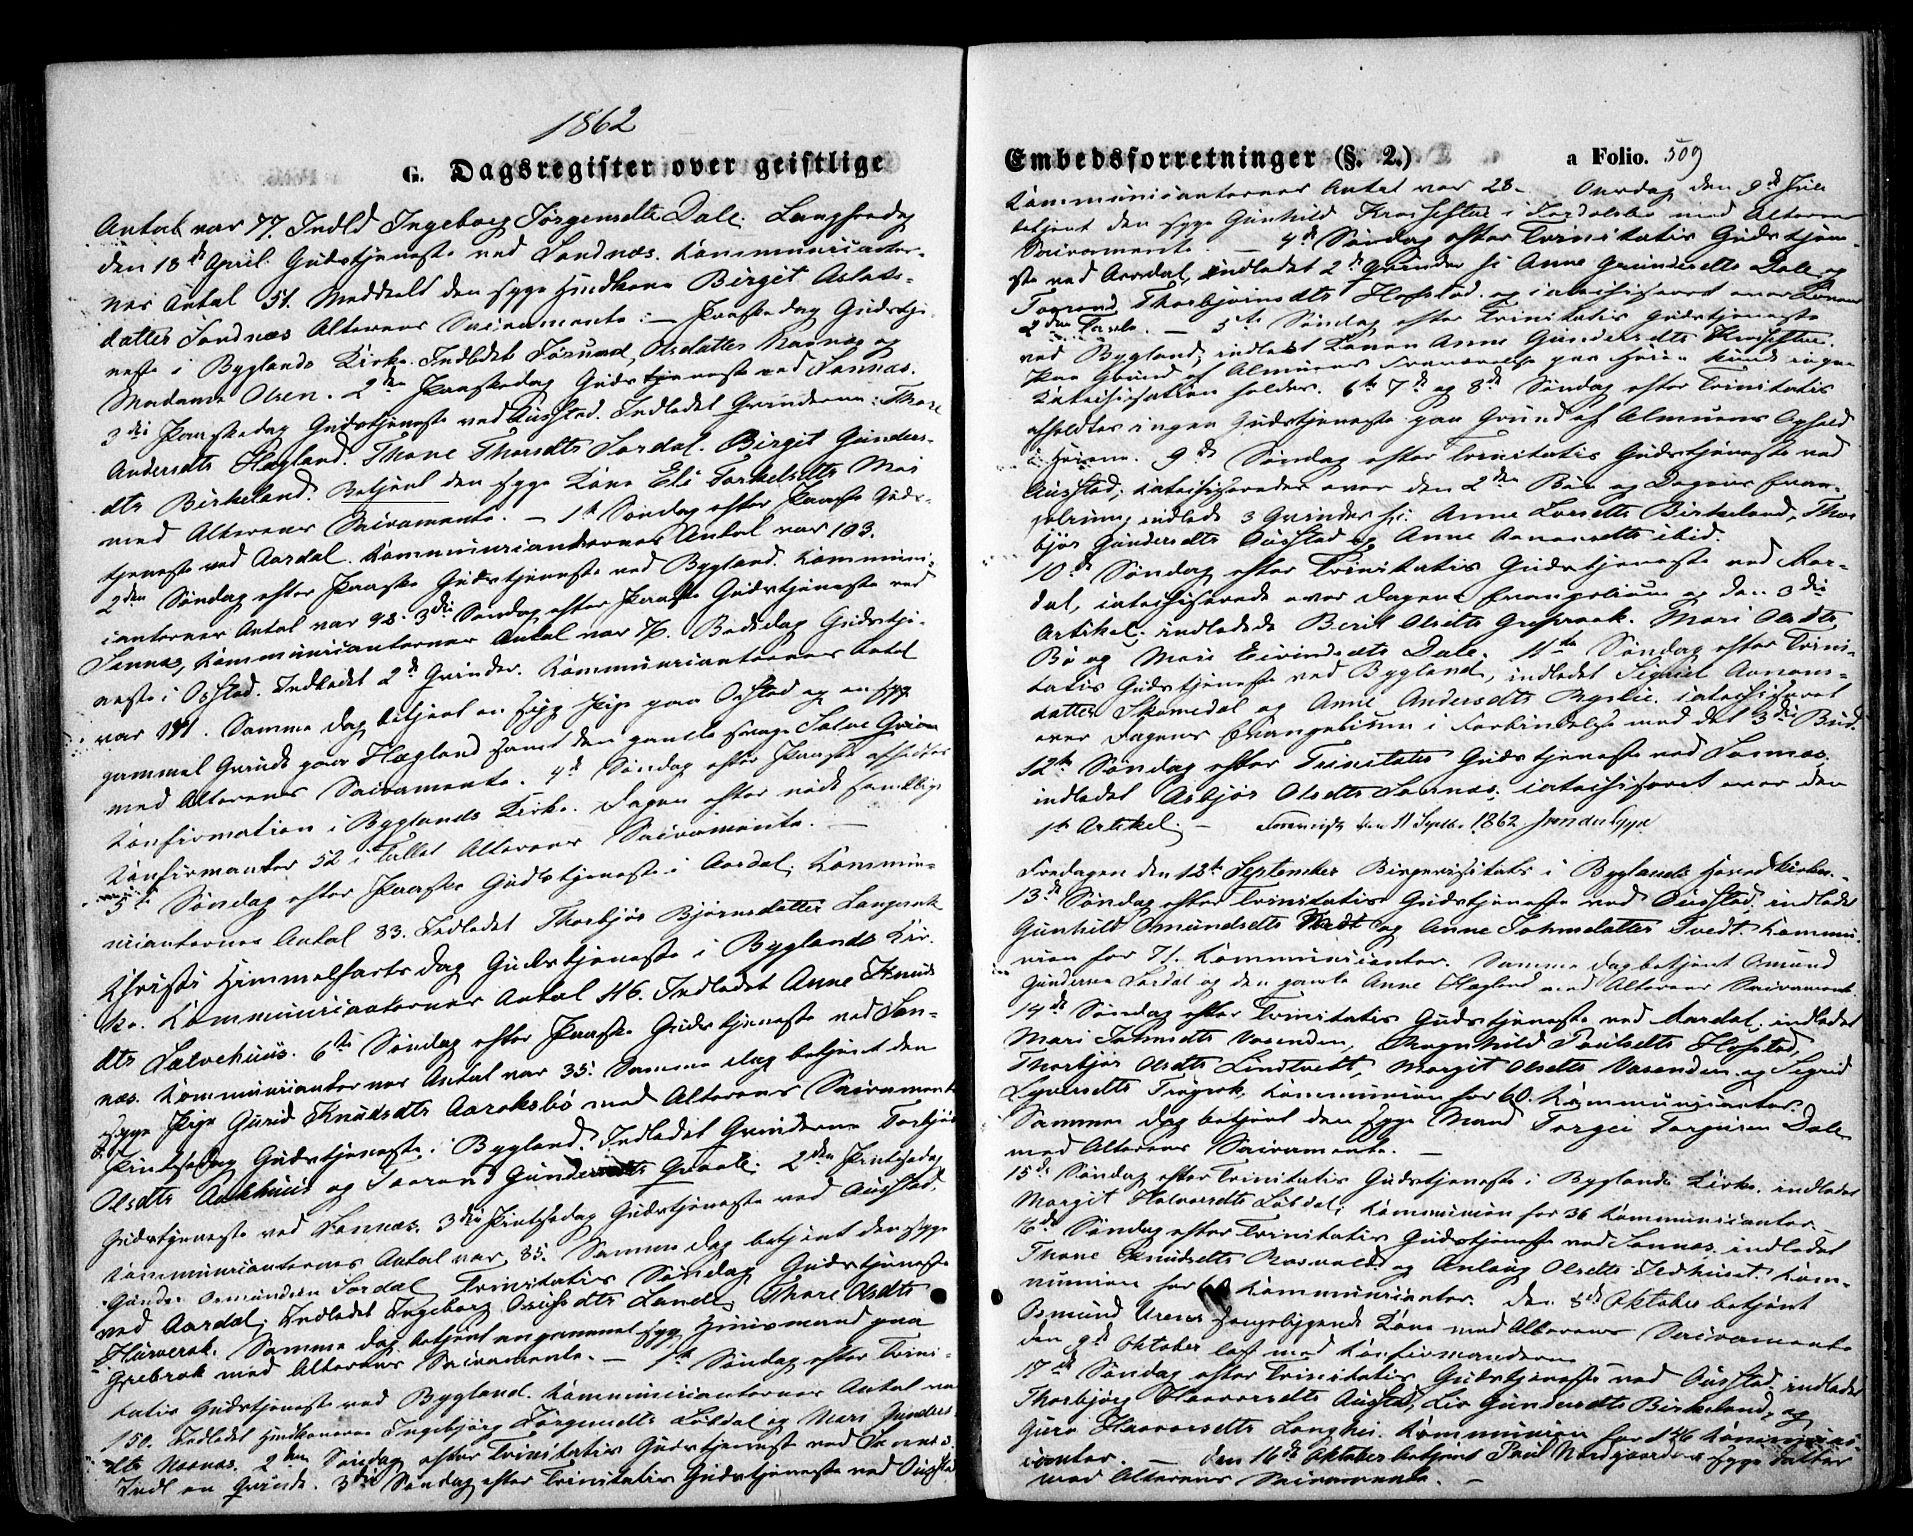 1862
G. Dagsregister over geistlige
Antal var 77. Indld Ingeborg Jørgensdtr Dale. Langfredag
den 18de April. Gudstjeneste ved Sandnæs. Kommunicanter-
nes Antal 51. Meddeelt den syge Huuskone Birgit Aslaks-
datter Sandnæs Alterens Sacramente. — Paaskedag Gudstje-
neste i Byglands Kirke. Indledet Jørund Olsdatter Raanes og
Madame Olsen. 2den Paaskedag Gudstjeneste ved Sannæs.
3die Paaskedag Gudstjeneste ved Austad. Indledet Qvinderne: Thore
Andersdtr Hægland. Thone Thorsdtr Sordal. Birgit Gunders-
dtr Birkeland. Betjent den syge Kone Eli Torkelsdtr Moi
med Alterens Sacramente. — 1ste Søndag efter Paaske Guds-
tjeneste ved Aardal. Kommunicanternes Antal var 103.
2den Søndag efter Paaske Gudstjeneste ved Bygland. Kommuni-
canternes Antal var 92. 3die Søndag efter Paaske Gudstjeneste ved
Sannæs, Kommunicanternes Antal var 76. Bededag Gudstje-
neste i Ostad. Indledet 2de Qvinder. Kommunicanternes Antal
var 191. Samme Dag betjent en syg Pige paa Ostad og en syg
gammel Qvinde paa Hægland samt den gamle svage Salve
med Alterens Sacramente. 4de Søndag efter Paaske afholdtes
Konfirmation i Byglands Kirke. Dagen efter nøde samtlige
Konfirmanter 52 i Tallet Alterens Sacramente. —
5te Søndag efter Paaske Gudstjeneste i Aardal. Kommu-
nicanternes Antal 83. Indledet Thorbjør Bjørnsdatter Langerak
Christi Himmelfartsdag Gudstjeneste i Byglands Kir-
ke. Kommunicanternes Antal 116. Indledet Anne Knuds-
dtr Salvehuus. 6te Søndag efter Paaske Gudstjeneste ved San-
næs. Kommunicanternes Antal var 35. Samme Dag betjent den
syge Pige Gunild Knudsdtr Aaraksbø med Alterens Sacramente
Pintsedag Gudstjeneste i Bygland. Indledet Qvinderne Torbjør
Olsdtr Aakhuus og Taarand Gundersdtr 2den Pintsedag
Gudstjeneste ved Sannæs. 3die Pintsedag Gudstjeneste ved Austad.
Kommunicanternes Antal var 85. Samme Dag betjent den syge
Gunder Osmundsen Sordal. Trinitatis Søndag Gudstjeneste
ved Aardal; Indledet Ingeborg Landes, Thore Olsdtr
Hurverak. Samme Dag betjent en gammel syg Huusmand paa
Grebrok med Alterens Sacramente. — 1ste Søndag efter Trini-
tatis Gudstjeneste ved Bygland. Kommunicanternes Antal var
150. Indledet Huuskonerne Ingebjørg Jørgensdtr Lildal og Mari Gunders-
dtr Raanes. 2den Søndag efter Trinitatis Gudstjeneste ved Sannæs.
Indl en Qvinde. 3die Søndag efter Trinitatis Gudstjeneste ved Austad
Embedsforretninger (§. 2.) a Folio. 509
Kommunicanternes Antal var 28. Onsdag den 9de Juli
betjent den syge Gunhild i med Alterens
Sacramente — 4de Søndag efter Trinitatis Gudstjene-
ste ved Aardal, indledet 2de Qvinder Anne Gundersdtr Dale og
Thorbjørnsdtr Hofstad og catechiseret over
2den Parte. — 5te Søndag efter Trinitatis Gudstjeneste
ved Bygland; indledt Konen Anne Gundersdtr
Paa Grund af Almuens Fraværelse paa Heien kunde ingen
Katechisation holdes. 6te 7de og 8de Søndag efter Trinitatis
afholdtes ingen Gudstjeneste paa Grund af Almuens Ophold
i Heiene. 9de Søndag efter Trinitatis Gudstjeneste ved
Austad; catechiseredes over den 2den Bøn og Dagens Evan-
gelium; indledt 3 Qvinder Anne Larsdtr Birkeland, Thor
bjør Gundersdtr Austad og Anne Aanonsdtr ibid.
10de Søndag efter Trinitatis Gudstjeneste ved Aar-
dal, catechiserede over Dagens Evangelium og den 3die
Artikel; indledede Berit Olsdtr Mari Olsdtr
Bø og Mari Eivindsdtr Dale. 11te Søndag efter Trini-
tatis Gudstjeneste ved Bygland, indledet Sigrid Aanons-
datter Skomedal og Anne Andersdtr catechiseret
over Dagens Evangelium i Forbindelse med det 3die Bud.
12te Søndag efter Trinitatis Gudstjeneste ved Sannæs.
indledet Asbjør Olsdtr Sannæs, catechiseret over den
1ste Artikel. — Forevist den 11 Septbr 1862
Fredagen den 12te September Bispevisitats i Byglands Hovedkirke.
13de Søndag efter Trinitatis Gudstjeneste ved Austad, indledet
Gunhild Omundsdtr og Anne Salvesdatter Tvedt. Kommu-
nion for 71 Kommunicanter. Samme Dag betjent Omund
Gundersen Sordal og den gamle Anne Hægland med Alterens Sacramente.
14de Søndag efter Trinitatis Gudstjeneste ved Aardal; indledet
Mari Vasenden, Ragnhild Paulsdtr Hofstad,
Thorbjør Olsdtr Lindtvedt, Margit Olsdtr Vasenden og Sigrid
Kommunion for 60 Kommunicanter.
Samme Dag betjent den syge Mand Torgei Torgersen Dale
med Alterens Sacramente. —
15de Søndag efter Trinitatis Gudstjeneste i Byglands Kirke. indledet
Margit Halvorsdtr Lildal; Kommunion for 36 Kommunicanter —
16de Søndag efter Trinitatis Gudstjeneste ved Sannæs. indledet
Thone Knudsdtr og Anlaug Olsdtr Kom-
munion for Kommunicanter. Den 8de Oktober betjent
Osmund sengeliggende Kone med Alterens Sacramente
den 9de Oktober læst med Konfirmanderne
17de Søndag efter Trinitatis Gudstjeneste ved Austad. indledet
Thorbjørg Haavorsdtr Austad, Liv Gundersdtr Birkeland, og
Guro Haavorsdtr Langhei. Kommunion for 146 Kommuni-
canter. — Den 16de Oktober betjent Paul syge Datter
med Alterens Sacramente. —